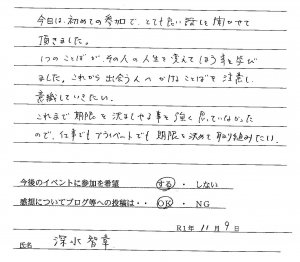 今日は、初めての参加で、とても良い話を聞かせて
頂きました。
1つのことばが、その人の人生を変えてしまう事を学び
ました。これから出会う人へかけることばを注意し
意識していきたい。
これまで期限を決めてやる事を強く思っていなかった
ので、仕事でもプライベートでも期限を決めて取り組みたい。
今後のイベントに参加を希望 する ・ しない
感想についてブログ等への投稿は・・ OK ・ NG
R1年 11月 9日
氏名 深水智章